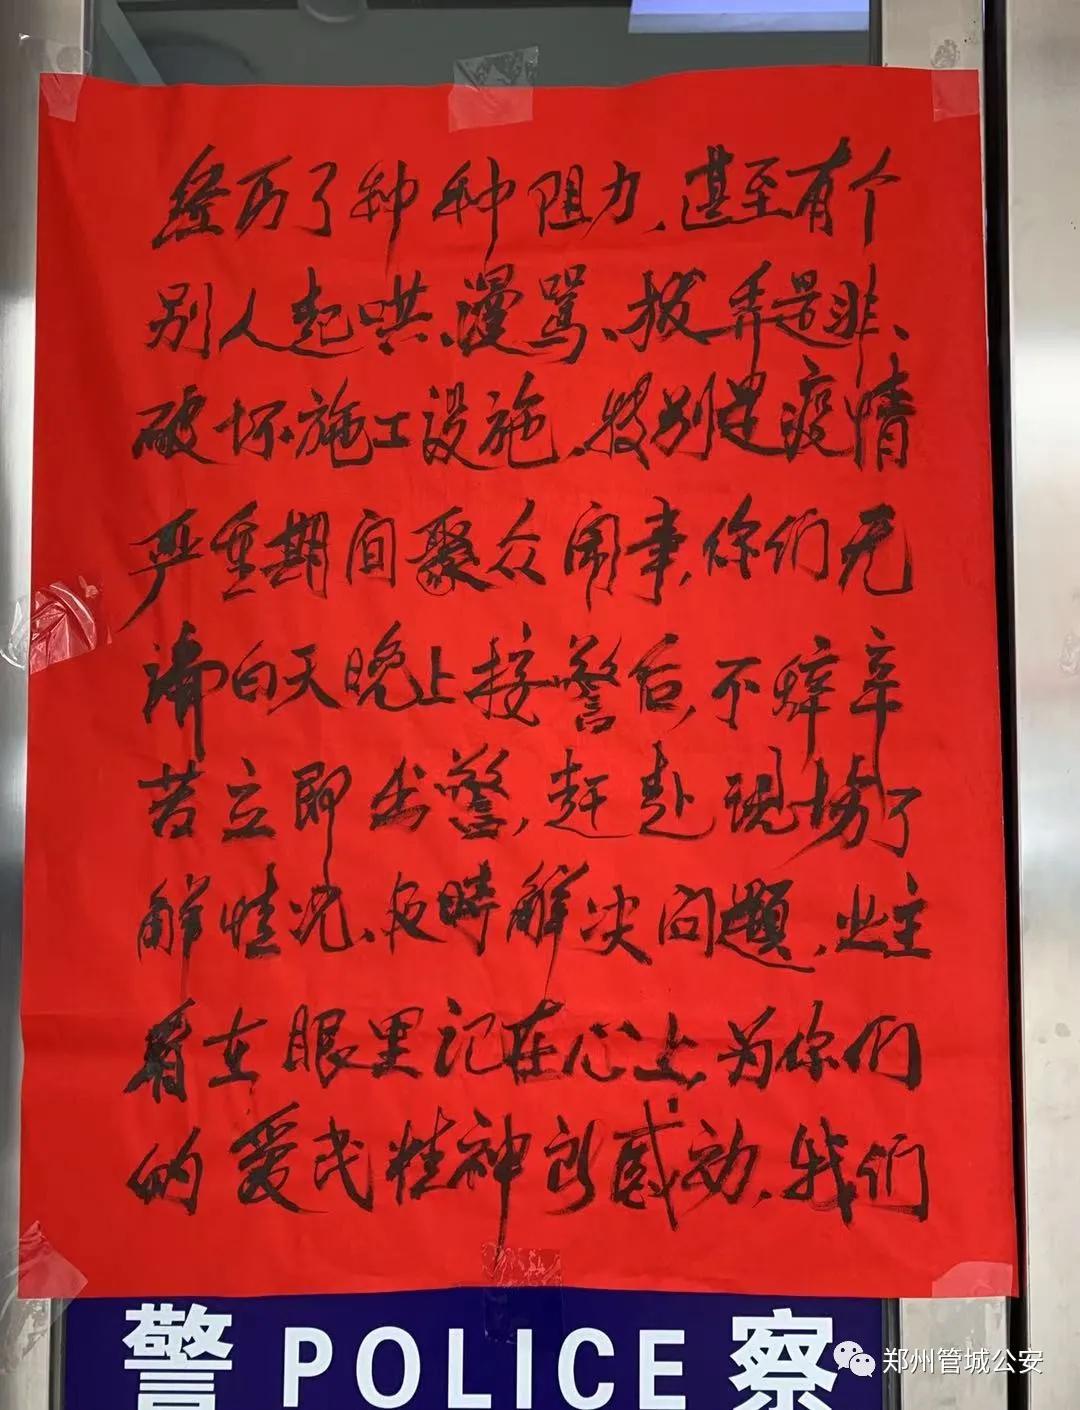 经历了种种阻力,甚至有个
别人起哄、漫骂、拨弄是非、
破坏施工设施,特别是疫情
严重期间聚众闹事,你们无
论白天晚上接警后,不辞辛
苦立即出警,赶赴现场了
解情况、及时解决问题,业主
看在眼里记在心上,为你们
的爱民精神所感动,我们
警 POLICE 察
郑州管城公安